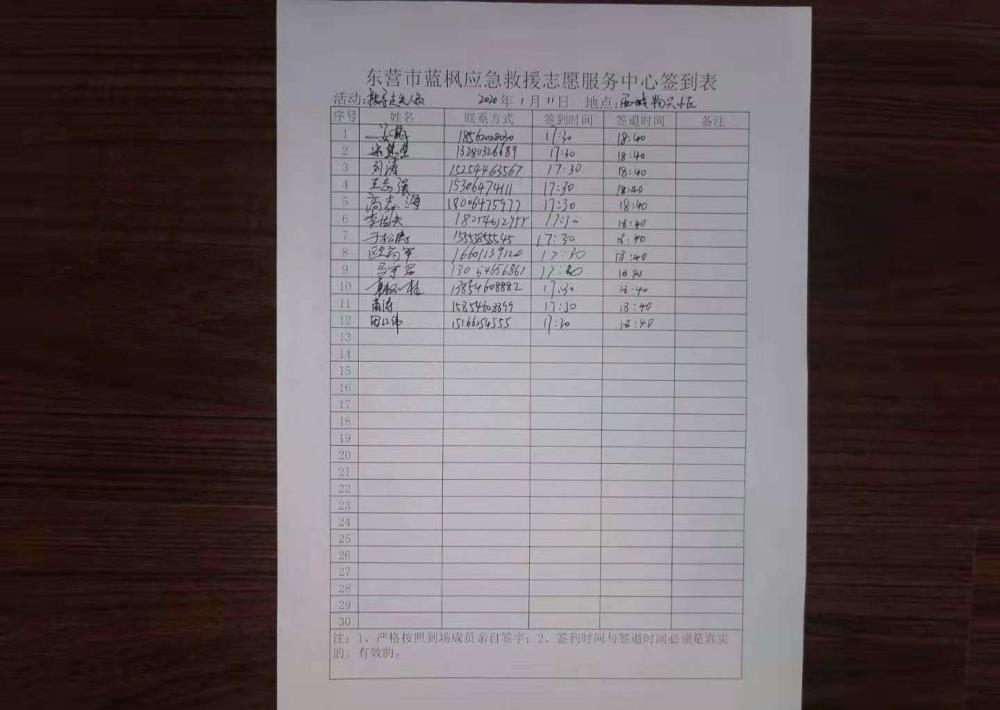 东营市蓝枫应急救援志愿服务中心签到表
活动:找寻走失人员 2020年1月11日 地点:西城物兴小区
序号 姓名 联系方式 签到时间 签退时间 备注
1 18562028030 17:30 18:40
2 13280326689 17:30 18:40
3 刘涛 15254463567 17:30 18:40
4 王志强 15306474111 17:30 18:40
5 高志海 18006475977 17:30 18:40
6 17:30 18:40
7 于松涛 15553855545 17:30 18:40
8 欧向军 16601139120 17:30 18:40
9 马宗君 13054656867 17:30 18:40
10 13854608882 17:30 18:40
11 苗涛 15854603899 17:30 18:40
12 田江伟 15166254555 17:30 18:40
13
14
15
16
17
18
19
20
21
22
23
24
25
26
27
28
29
30
注:1、严格按照到场成员亲自签字;2、签到时间与签退时间必须是真实
的、有效的。